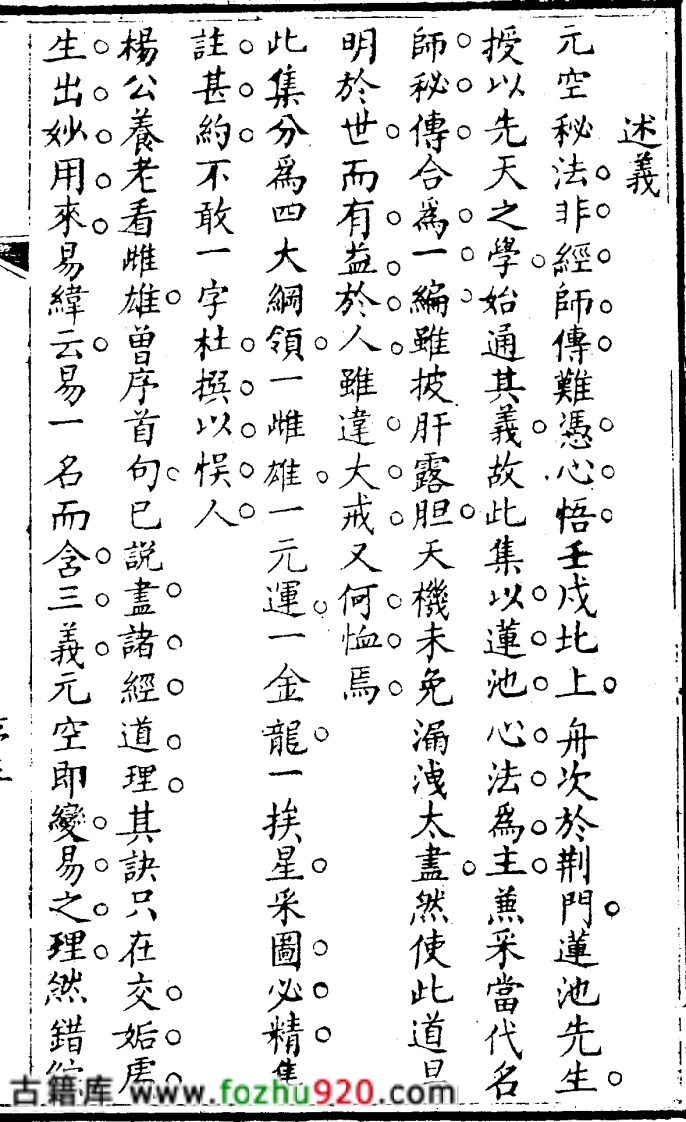 述義
元空秘法非經師傳難憑心悟壬戌北上舟次於荆門蓮池先生
授以先天之學始通其義故此集以蓮池心法爲主兼采當代名
師秘傳合爲一編雖披肝露胆天機未免漏洩太盡然使此道旦
明於世而有益於人雖違大戒又何恤焉
此集分爲四大綱領一雌雄一元運一金龍一挨星采圖必精集
註甚約不敢一字杜撰以悞人
楊公養老看雌雄曾序首句已説盡諸經道理其訣只在交姤處
生出妙用來易緯云易一名而含三義元空即變易之理然錯綜
古籍库 www.fozhu920.com